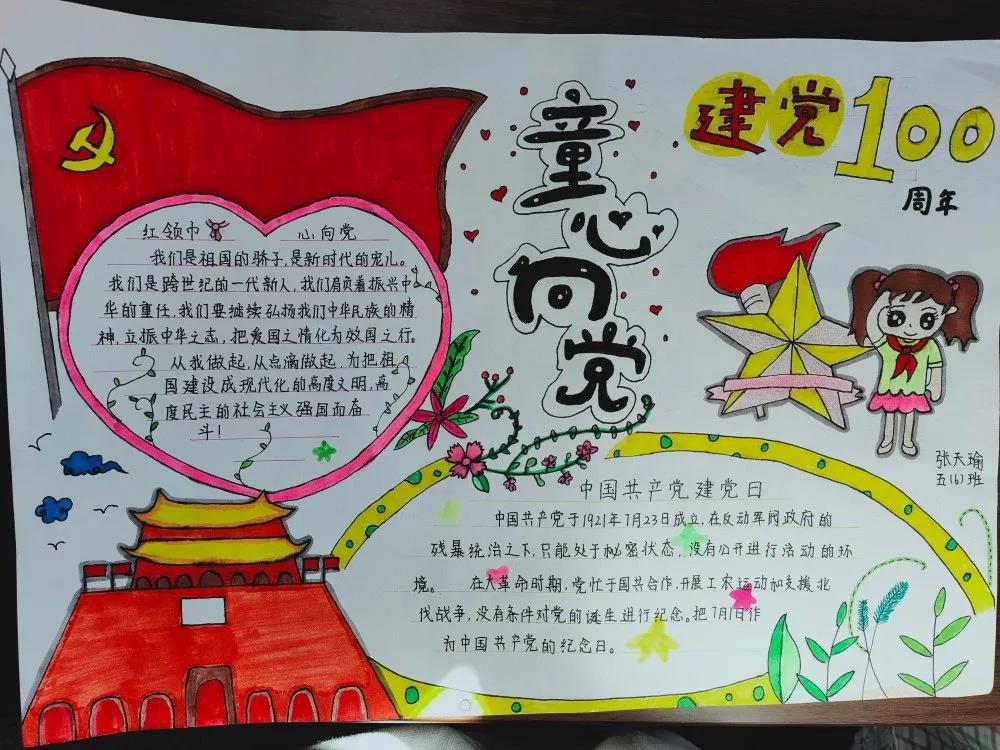 童心向党
建党100
周年
红领巾 心向党
我们是祖国的骄子,是新时代的宠儿。
我们是跨世纪的一代新人,我们肩负着振兴中
华的重任,我们要继续弘扬我们中华民族的精
神,立振中华之志,把爱国之情化为效国之行。
从我做起,从点滴做起,为把祖
国建设成现代化的高度文明,高
度民主的社会主义强国而奋
斗!
张天瑜
五(6)班
中国共产党建党日
中国共产党于1921年7月23日成立,在反动军阀政府的
残暴统治之下,只能处于秘密状态,没有公开进行活动的环
境。 在大革命时期,党忙于国共合作,开展工农运动和支援北
伐战争,没有条件对党的诞生进行纪念。把7月1日作
为中国共产党的纪念日。